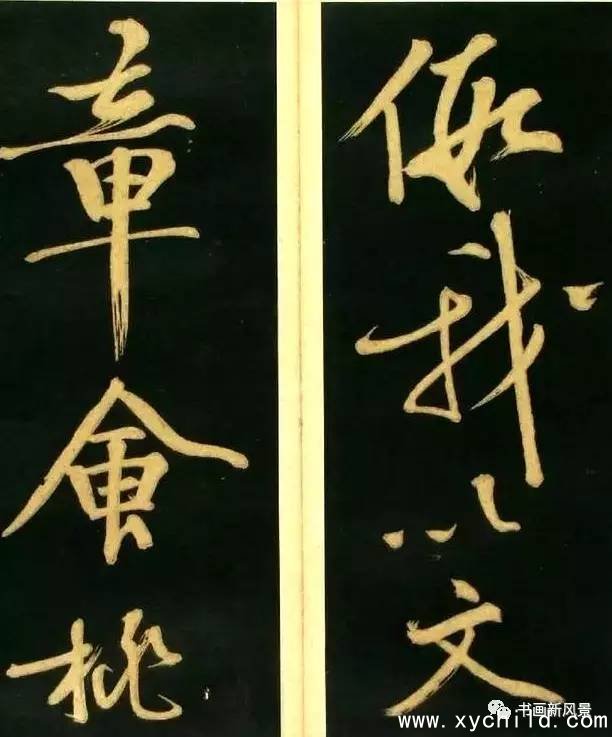 假我以文
章會桃
书画新风景
www.xychild.com